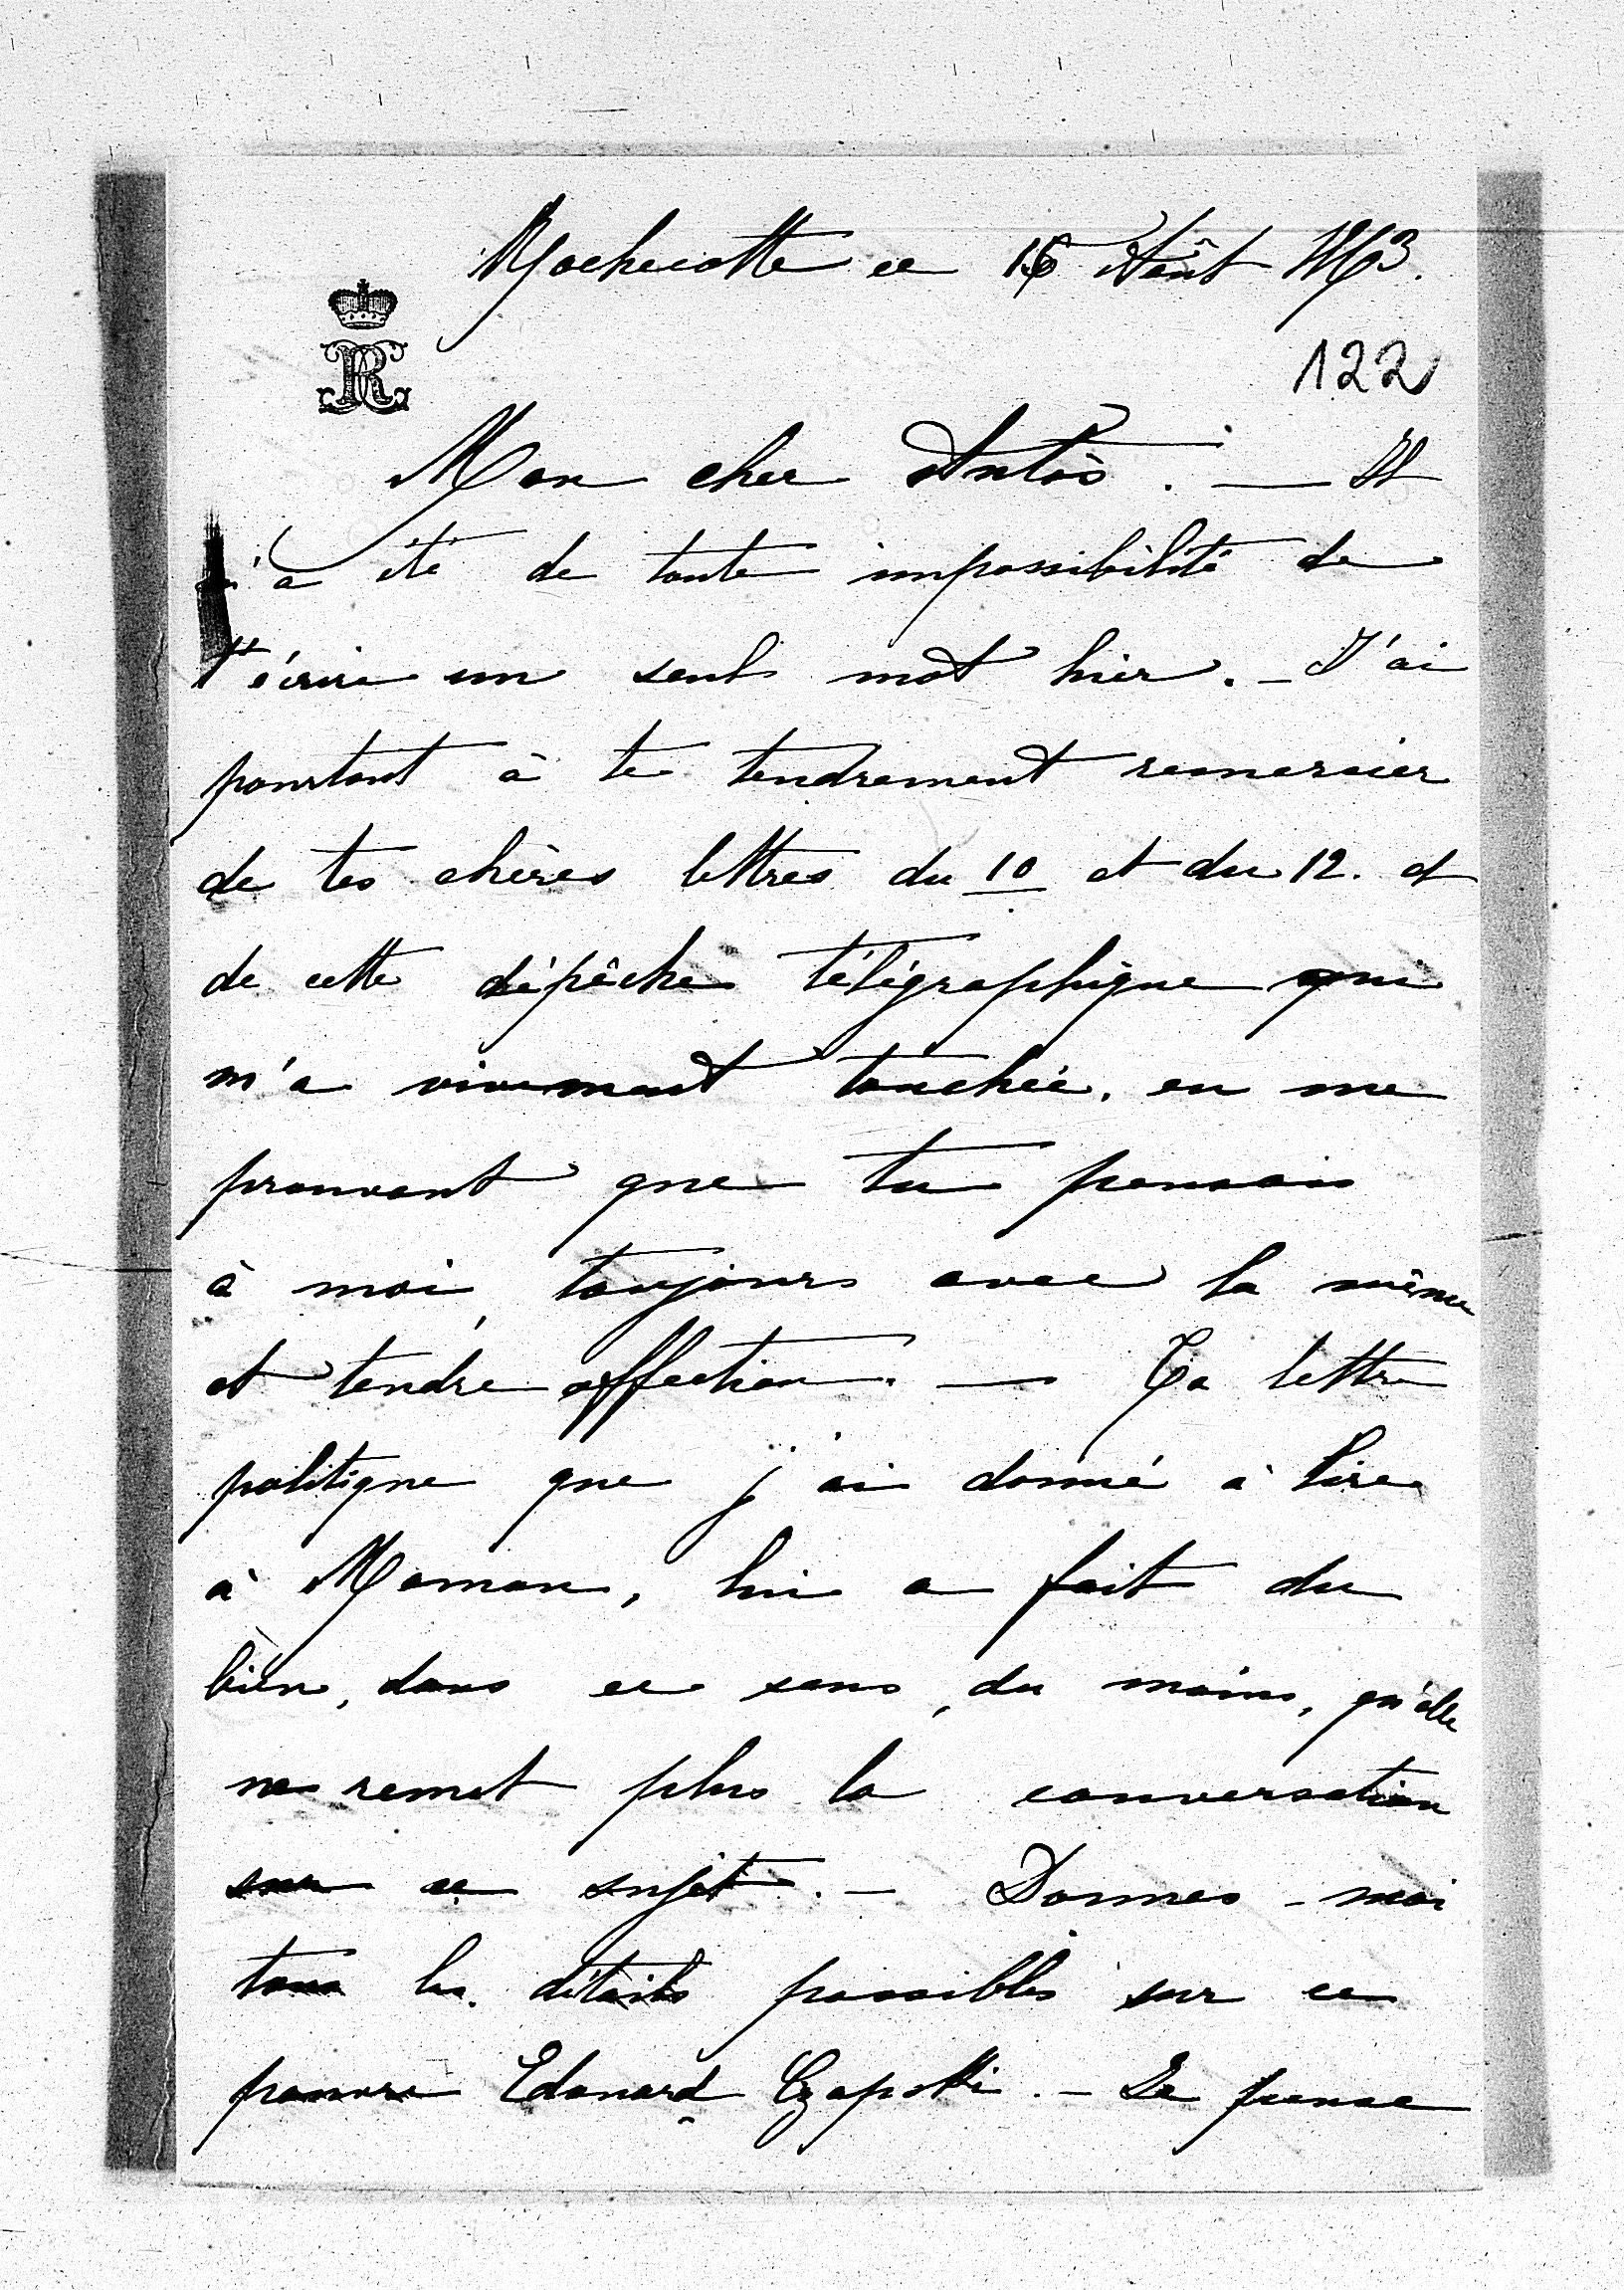 Rochecotte ce 16 Août 1863.
122
Mon cher Antòs. — Il
m'a été de toute impossibilité de
t'écrire un seul mot hier. — J'ai
pourtant à te tendrement remercier
de tes chères lettres du 10 et du 12. et
de cette dépêche télégraphique qui
m'a vivement touchée, en me
prouvant que tu pensais
à moi, toujours avec la même
et tendre affection. — Ta lettre
politique que j'ai donné à lire
à Maman, lui a fait du
bien, dans ce sens, du moins, qu'elle
ne remet plus la conversation
sur ce sujet. — Donnes-moi
tous les détails possibles sur ce
pauvre Edouard Czapski. — Je pense